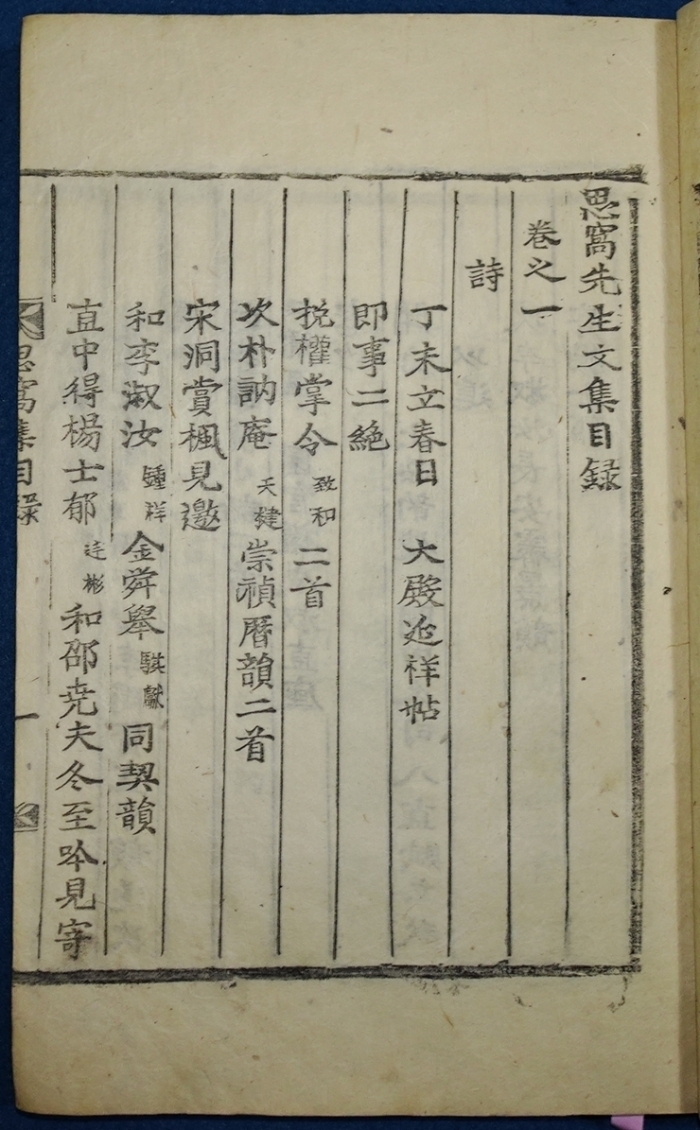 思窩先生文集目録
卷之一
詩
丁未立春日 大殿延祥帖
即事二絶
挽權掌令致和二首
次朴訥庵天健崇禎曆韻二首
宋洞賞楓見邀
和李淑汝鍾祥金舜舉騏獻同契韻
直中得楊士郁廷彬和邵尭夫冬至吟見寄
思窩集目録 一